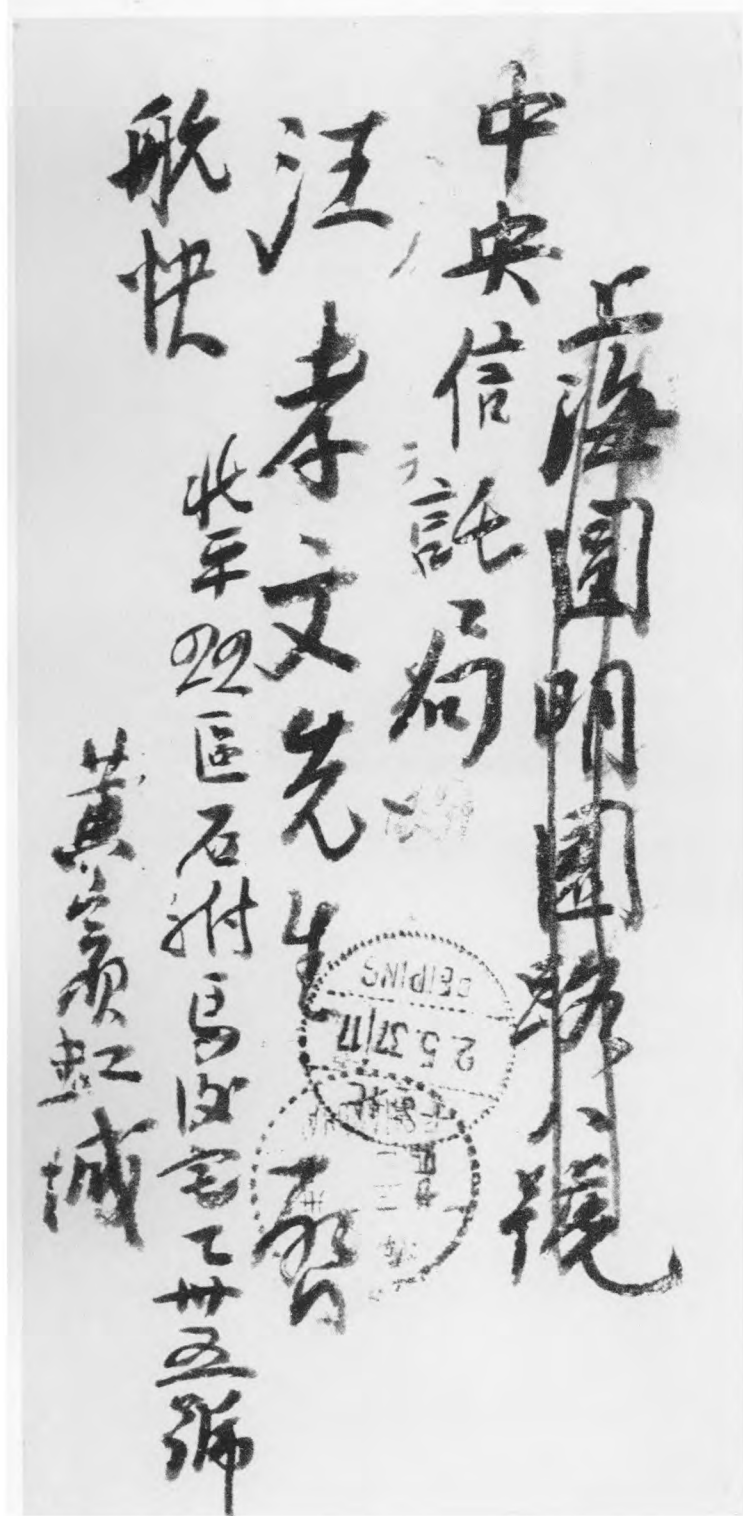 上海圓明園路八號
中央信託局
汪孝文先生啟
航快
北平22區石附馬後宅乙卅五號
黃賓虹緘
BEIPING
2.5.37|17